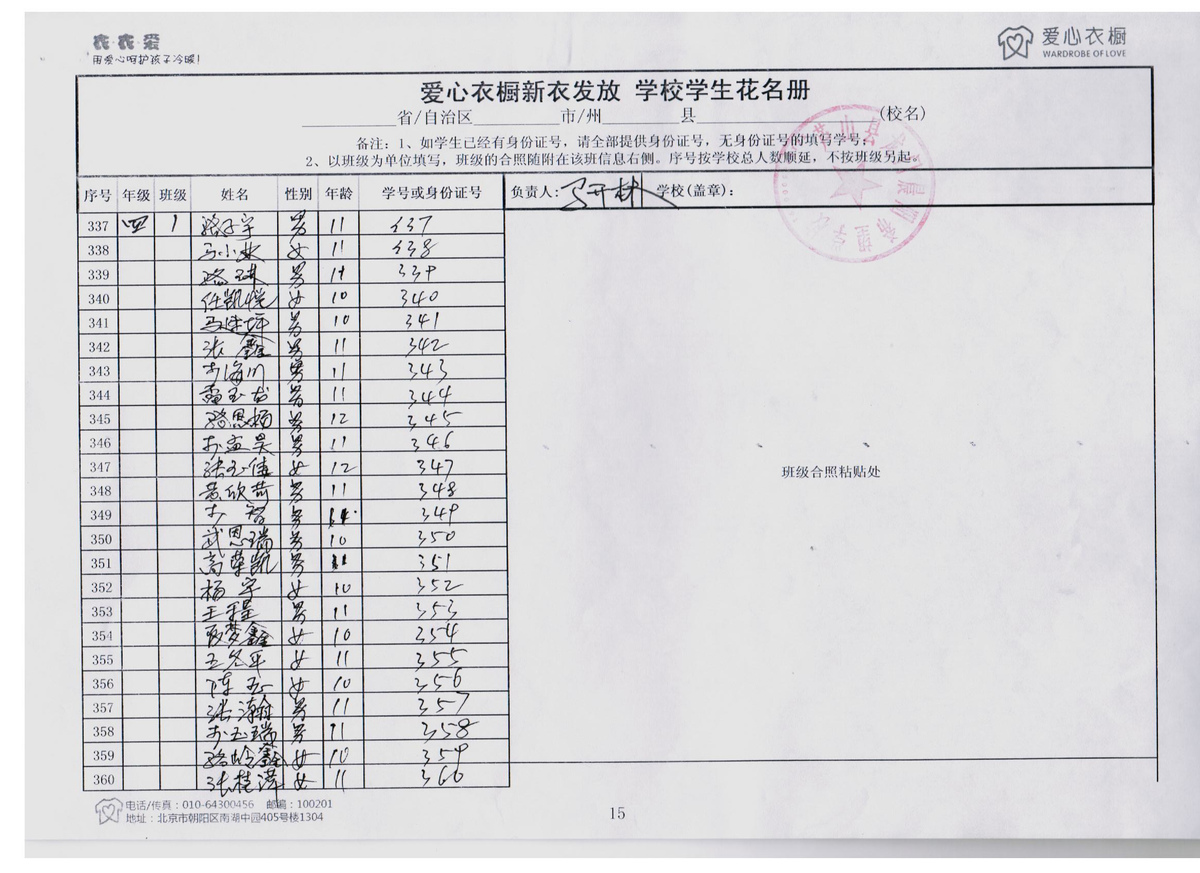 衣·衣·爱
用爱心呵护孩子冷暖!
爱心衣橱
WARDROBE OF LOVE
爱心衣橱新衣发放 学校学生花名册
省/自治区 市/州 县 (校名)
备注:1、如学生已经有身份证号,请全部提供身份证号,无身份证号的填写学号;
2、以班级为单位填写,班级的合照随附在该班信息右侧。序号按学校总人数顺延,不按班级另起。
序号 年级 班级 姓名 性别 年龄 学号或身份证号 负责人: 学校(盖章):
337 四 1 男 11 337
338 女 11 338
339 男 11 339
340 任凯悦 女 10 340
341 男 10 341
342 张鑫 男 11 342
343 海川 男 11 343
344 男 11 344
345 骆思杨 男 12 345
346 男 11 346
347 张玉倩 女 12 347
348 黄欣荷 男 11 348
349 男 349
350 武恩瑞 男 10 350
351 高荣凯 男 11 351
352 杨宇 女 10 352
353 王程 男 11 353
354 梦鑫 女 10 354
355 女 11 355
356 陈 女 10 356
357 张瀚 男 11 357
358 玉瑞 男 11 358
359 鑫 女 10 359
360 张 女 11 360
班级合照粘贴处
电话/传真:010-64300456 邮编:100201
地址:北京市朝阳区南湖中园405号楼1304
15